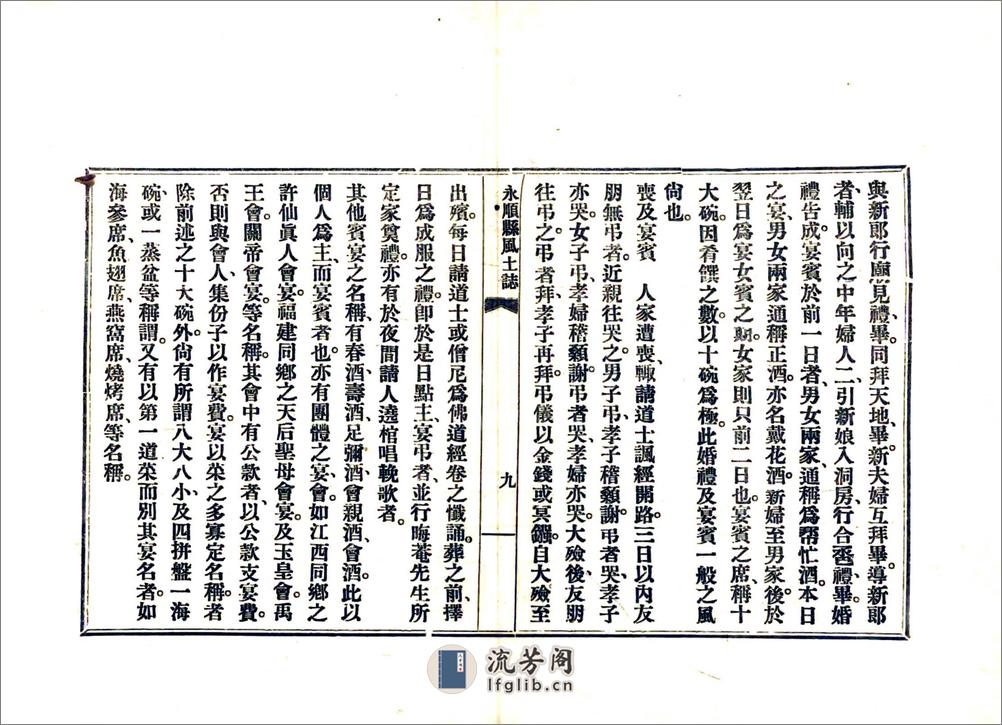 與新郎行廟見禮、畢、同拜天地、畢、新夫婦互拜畢、導新郎
者、輔以向之中年婦人二、引新娘入洞房、行合卺禮、畢、婚
禮告成、宴賓於前一日者、男女兩家通稱爲幫忙酒。本日
之宴、男女兩家通稱正酒、亦名戴花酒。新婦至男家後、於
翌日爲宴女賓之期。女家則只前二日也。宴賓之席、稱十
大碗。因肴饌之數、以十碗爲極。此婚禮及宴賓一般之風
尙也。
喪及宴賓　人家遭喪、輙請道士諷經開路、三日以內、友
朋無弔者、近親往哭之。男子弔、孝子稽顙謝。弔者哭、孝子
亦哭。女子弔、孝婦稽顙謝。弔者哭、孝婦亦哭。大殮後、友朋
往弔之。弔者拜、孝子再拜。弔儀以金錢或冥鏹。自大殮至
永順縣風土誌
九
出殯、每日請道士或僧尼爲佛道經卷之懺誦。葬之前、擇
日爲成服之禮。卽於是日點主、宴弔者、並行晦菴先生所
定家奠禮。亦有於夜間請人遶棺唱輓歌者。
其他賓宴之名稱、有春酒、壽酒、足彌酒、會親酒、會酒。此以
個人爲主而宴賓者也。亦有團體之宴會。如江西同鄉之
許仙眞人會宴。福建同鄉之天后聖母會宴。及玉皇會。禹
王會。關帝會宴。等名稱。其會中有公款者、以公款支宴費。
否則與會人、集份子以作宴費。宴以菜之多寡定名稱。者
除前述之十大碗外。尙有所謂八大八小、及四拼盤一海
碗、或一蒸盆等稱謂。又有以第一道菜而別其宴名者。如
海參席、魚翅席、燕窩席、燒烤席、等名稱。
流芳阁
lfglib.cn